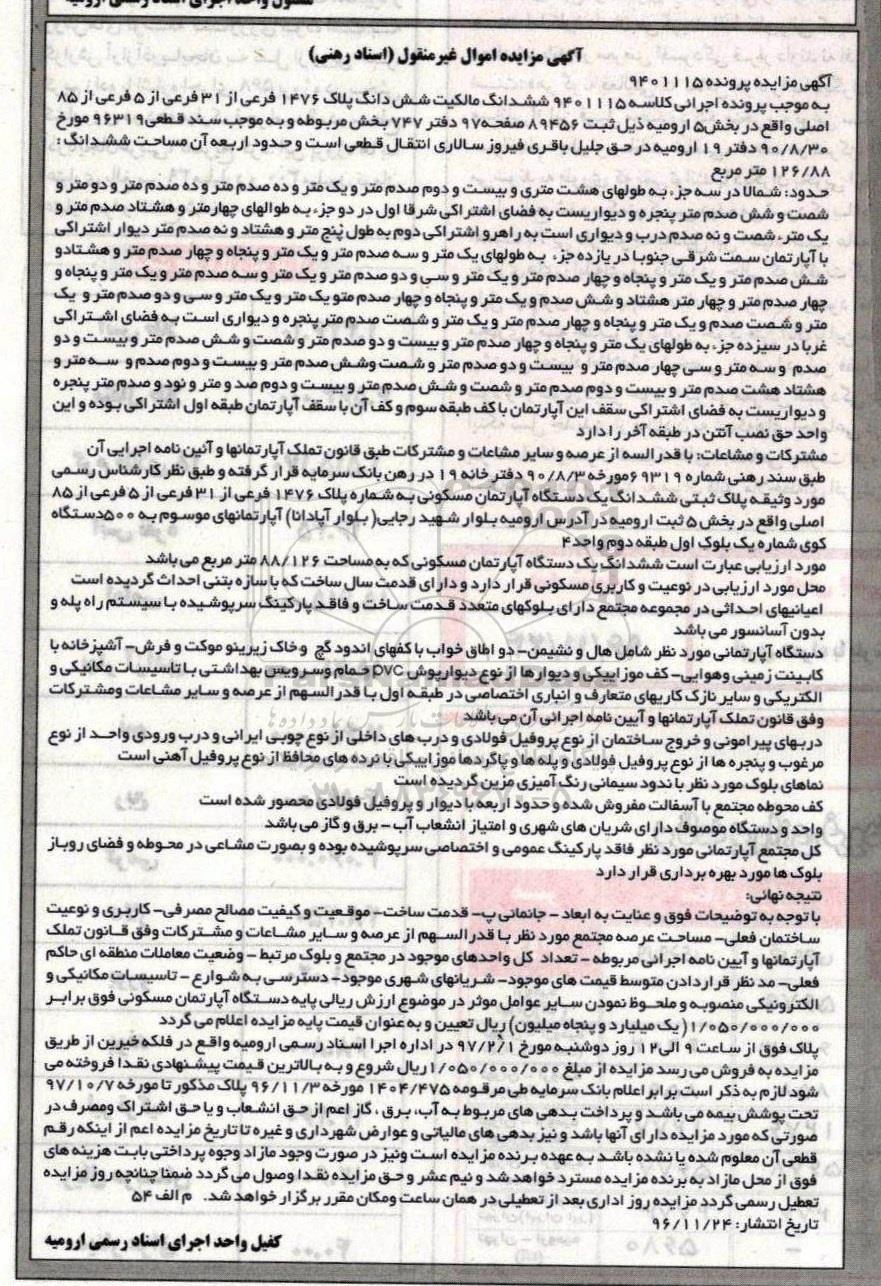 مسئول واحد اجرای اسناد رسمی ارومیه
آگهی مزایده اموال غیرمنقول (اسناد رهنی)
آگهی مزایده پرونده ۹۴۰۱۱۱۵
به موجب پرونده اجرائی کلاسه ۹۴۰۱۱۱۵ ششدانگ مالکیت شش دانگ پلاک ۱۴۷۶ فرعی از ۳۱ فرعی از ۵ فرعی از ۸۵
اصلی واقع در بخش۵ ارومیه ذیل ثبت ۸۹۴۵۶ صفحه۹۷ دفتر ۷۴۷ بخش مربوطه و به موجب سند قطعی۹۶۳۱۹ مورخ
۹۰/۸/۳۰ دفتر ۱۹ ارومیه در حق جلیل باقری فیروز سالاری انتقال قطعی است و حدود اربعه آن مساحت ششدانگ :
۱۲۶/۸۸ متر مربع
حدود: شمالا در سه جزء به طولهای هشت متری و بیست و دوم صدم متر و یک متر و ده صدم متر و ده صدم متر و دو متر و
شصت و شش صدم متر پنجره و دیواریست به فضای اشتراکی شرقا اول در دو جزء به طوالهای چهارمتر و هشتاد صدم متر و
یک متر، شصت و نه صدم درب و دیواری است به راهرو اشتراکی دوم به طول پنج متر و هشتاد و نه صدم متر دیوار اشتراکی
با آپارتمان سمت شرقی جنوبا در یازده جزء به طولهای یک متر و سه صدم متر و یک متر و پنجاه و چهار صدم متر و هشتادو
شش صدم متر و یک متر و پنجاه و چهار صدم متر و یک متر و سی و دو صدم متر و یک متر و سه صدم متر و یک متر و پنجاه و
چهار صدم متر و چهار متر هشتاد و شش صدم و یک متر و پنجاه و چهار صدم متو یک متر و یک متر و سی و دو صدم متر و یک
متر و شصت صدم و یک متر و پنجاه و چهار صدم متر و یک متر و شصت صدم متر پنجره و دیواری است به فضای اشتراکی
غربا در سیزده جزء به طولهای یک متر و پنجاه و چهار صدم متر و بیست و دو صدم متر و شصت و شش صدم متر و بیست و دو
صدم و سه متر و سی چهار صدم متر و بیست و دو صدم متر و شصت وشش صدم متر و بیست و دوم صدم و سه متر و
هشتاد هشت صدم متر و بیست و دوم صدم متر و شصت و شش صدم متر و بیست و دوم صد و متر و نود و صدم متر پنجره
و دیواریست به فضای اشتراکی سقف این آپارتمان با کف طبقه سوم و کف آن با سقف آپارتمان طبقه اول اشتراکی بوده و این
واحد حق نصب آنتن در طبقه آخر را دارد
مشترکات و مشاعات: با قدرالسه از عرصه و سایر مشاعات و مشترکات طبق قانون تملک آپارتمانها و آئین نامه اجرایی آن
طبق سند رهنی شماره ۶۹۳۱۹مورخه ۹۰/۸/۳ دفتر خانه ۱۹ در رهن بانک سرمایه قرار گرفته و طبق نظر کارشناس رسمی
مورد وثیقه پلاک ثبتی ششدانگ یک دستگاه آپارتمان مسکونی به شماره پلاک ۱۴۷۶ فرعی از ۳۱ فرعی از ۵ فرعی از ۸۵
اصلی واقع در بخش ۵ ثبت ارومیه در آدرس ارومیه بلوار شهید رجایی( بلوار آپادانا) آپارتمانهای موسوم به ۵۰۰دستگاه
کوی شماره یک بلوک اول طبقه دوم واحد۴
مورد ارزیابی عبارت است ششدانگ یک دستگاه آپارتمان مسکونی که به مساحت ۸۸/۱۲۶ متر مربع می باشد
محل مورد ارزیابی در نوعیت و کاربری مسکونی قرار دارد و دارای قدمت سال ساخت که با سازه بتنی احداث گردیده است
اعیانیهای احداثی در مجموعه مجتمع دارای بلوکهای متعدد قدمت ساخت و فاقد پارکینگ سرپوشیده با سیستم راه پله و
بدون آسانسور می باشد
دستگاه آپارتمانی مورد نظر شامل هال و نشیمن- دو اطاق خواب با کفهای اندود گچ و خاک زیرینو موکت و فرش- آشپزخانه با
کابینت زمینی وهوایی- کف موزاییکی و دیوارها از نوع دیوارپوش pvc حمام وسرویس بهداشتی با تاسیسات مکانیکی و
الکتریکی و سایر نازک کاریهای متعارف و انباری اختصاصی در طبقه اول با قدر السهم از عرصه و سایر مشاعات ومشترکات
وفق قانون تملک آپارتمانها و آیین نامه اجرائی آن می باشد
دربهای پیرامونی و خروج ساختمان از نوع پروفیل فولادی و درب های داخلی از نوع چوبی ایرانی و درب ورودی واحد از نوع
مرغوب و پنجره ها از نوع پروفیل فولادی و پله ها و پاگردها موزاییکی با نرده های محافظ از نوع پروفیل آهنی است
نماهای بلوک مورد نظر با ندود سیمانی رنگ آمیزی مزین گردیده است
کف محوطه مجتمع با آسفالت مفروش شده و حدود اربعه با دیوار و پروفیل فولادی محصور شده است
واحد و دستگاه موصوف دارای شریان های شهری و امتیاز انشعاب آب - برق و گاز می باشد
کل مجتمع آپارتمانی مورد نظر فاقد پارکینگ عمومی و اختصاصی سرپوشیده بوده و بصورت مشاعی در محوطه و فضای روباز
بلوک ها مورد بهره برداری قرار دارد
نتیجه نهائی:
با توجه به توضیحات فوق و عنایت به ابعاد - جانمائی پ- قدمت ساخت- موقعیت و کیفیت مصالح مصرفی- کاربری و نوعیت
ساختمان فعلی- مساحت عرصه مجتمع مورد نظر با قدرالسهم از عرصه و سایر مشاعات و مشترکات وفق قانون تملک
آپارتمانها و آیین نامه اجرائی مربوطه - تعداد کل واحدهای موجود در مجتمع و بلوک مرتبط - وضعیت معاملات منطقه ای حاکم
فعلی- مد نظر قراردادن متوسط قیمت های موجود- شریانهای شهری موجود- دسترسی به شوارع - تاسیسات مکانیکی و
الکترونیکی منصوبه و ملحوظ نمودن سایر عوامل موثر در موضوع ارزش ریالی پایه دستگاه آپارتمان مسکونی فوق برابر
۱/۰۵۰/۰۰۰/۰۰۰( یک میلیارد و پنجاه میلیون) ریال تعیین و به عنوان قیمت پایه مزایده اعلام می گردد
پلاک فوق از ساعت ۹ الی۱۲ روز دوشنبه مورخ ۹۷/۲/۱ در اداره اجرا اسناد رسمی ارومیه واقع در فلکه خیرین از طریق
مزایده به فروش می رسد مزایده از مبلغ ۱/۰۵۰/۰۰۰/۰۰۰ریال شروع و به بالاترین قیمت پیشنهادی نقدا فروخته می
شود لازم به ذکر است برابر اعلام بانک سرمایه طی مرقومه ۱۴۰۴/۴۷۵ مورخه ۹۶/۱۱/۳ پلاک مذکور تا مورخه ۹۷/۱۰/۷
تحت پوشش بیمه می باشد و پرداخت بدهی های مربوط به آب، برق ، گاز اعم از حق انشعاب و یا حق اشتراک ومصرف در
صورتی که مورد مزایده دارای آنها باشد و نیز بدهی های مالیاتی و عوارض شهرداری و غیره تا تاریخ مزایده اعم از اینکه رقم
قطعی آن معلوم شده یا نشده باشد به عهده برنده مزایده است ونیز در صورت وجود مازاد وجوه پرداختی بابت هزینه های
فوق از محل مازاد به برنده مزایده مسترد خواهد شد و نیم عشر و حق مزایده نقدا وصول می گردد ضمنا چنانچه روز مزایده
تعطیل رسمی گردد مزایده روز اداری بعد از تعطیلی در همان ساعت ومکان مقرر برگزار خواهد شد. م الف ۵۴
تاریخ انتشار: ۹۶/۱۱/۲۴
کفیل واحد اجرای اسناد رسمی ارومیه